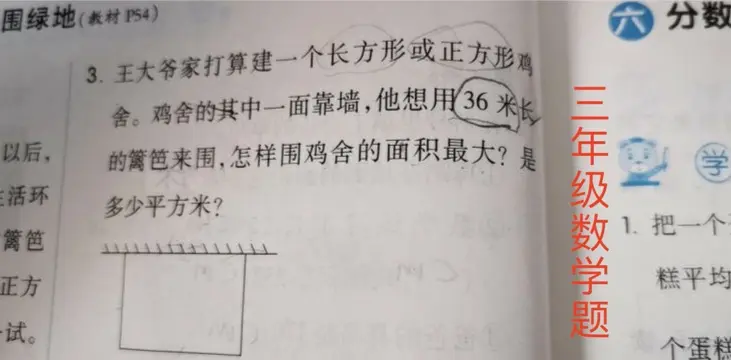 围绿地(教材 P54)
六 分数
3. 王大爷家打算建一个长方形或正方形鸡
舍。鸡舍的其中一面靠墙,他想用36米长
的篱笆来围,怎样围鸡舍的面积最大? 是
多少平方米?
以后,
生活环
篱笆
正方
试。
三年级数学题
学
1. 把一个
糕平均
个蛋糕